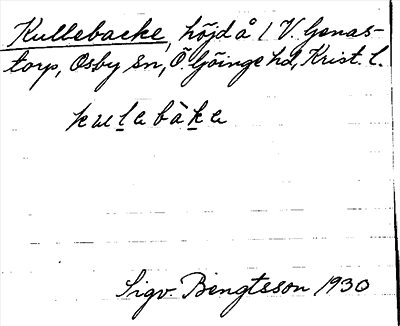 Kullebacke, höjd å 1 V. Genas-
torp, Osby sn, Ö. Göinge hd, Krist. l.
kulebàka
Sigv. Bengtsson 1930